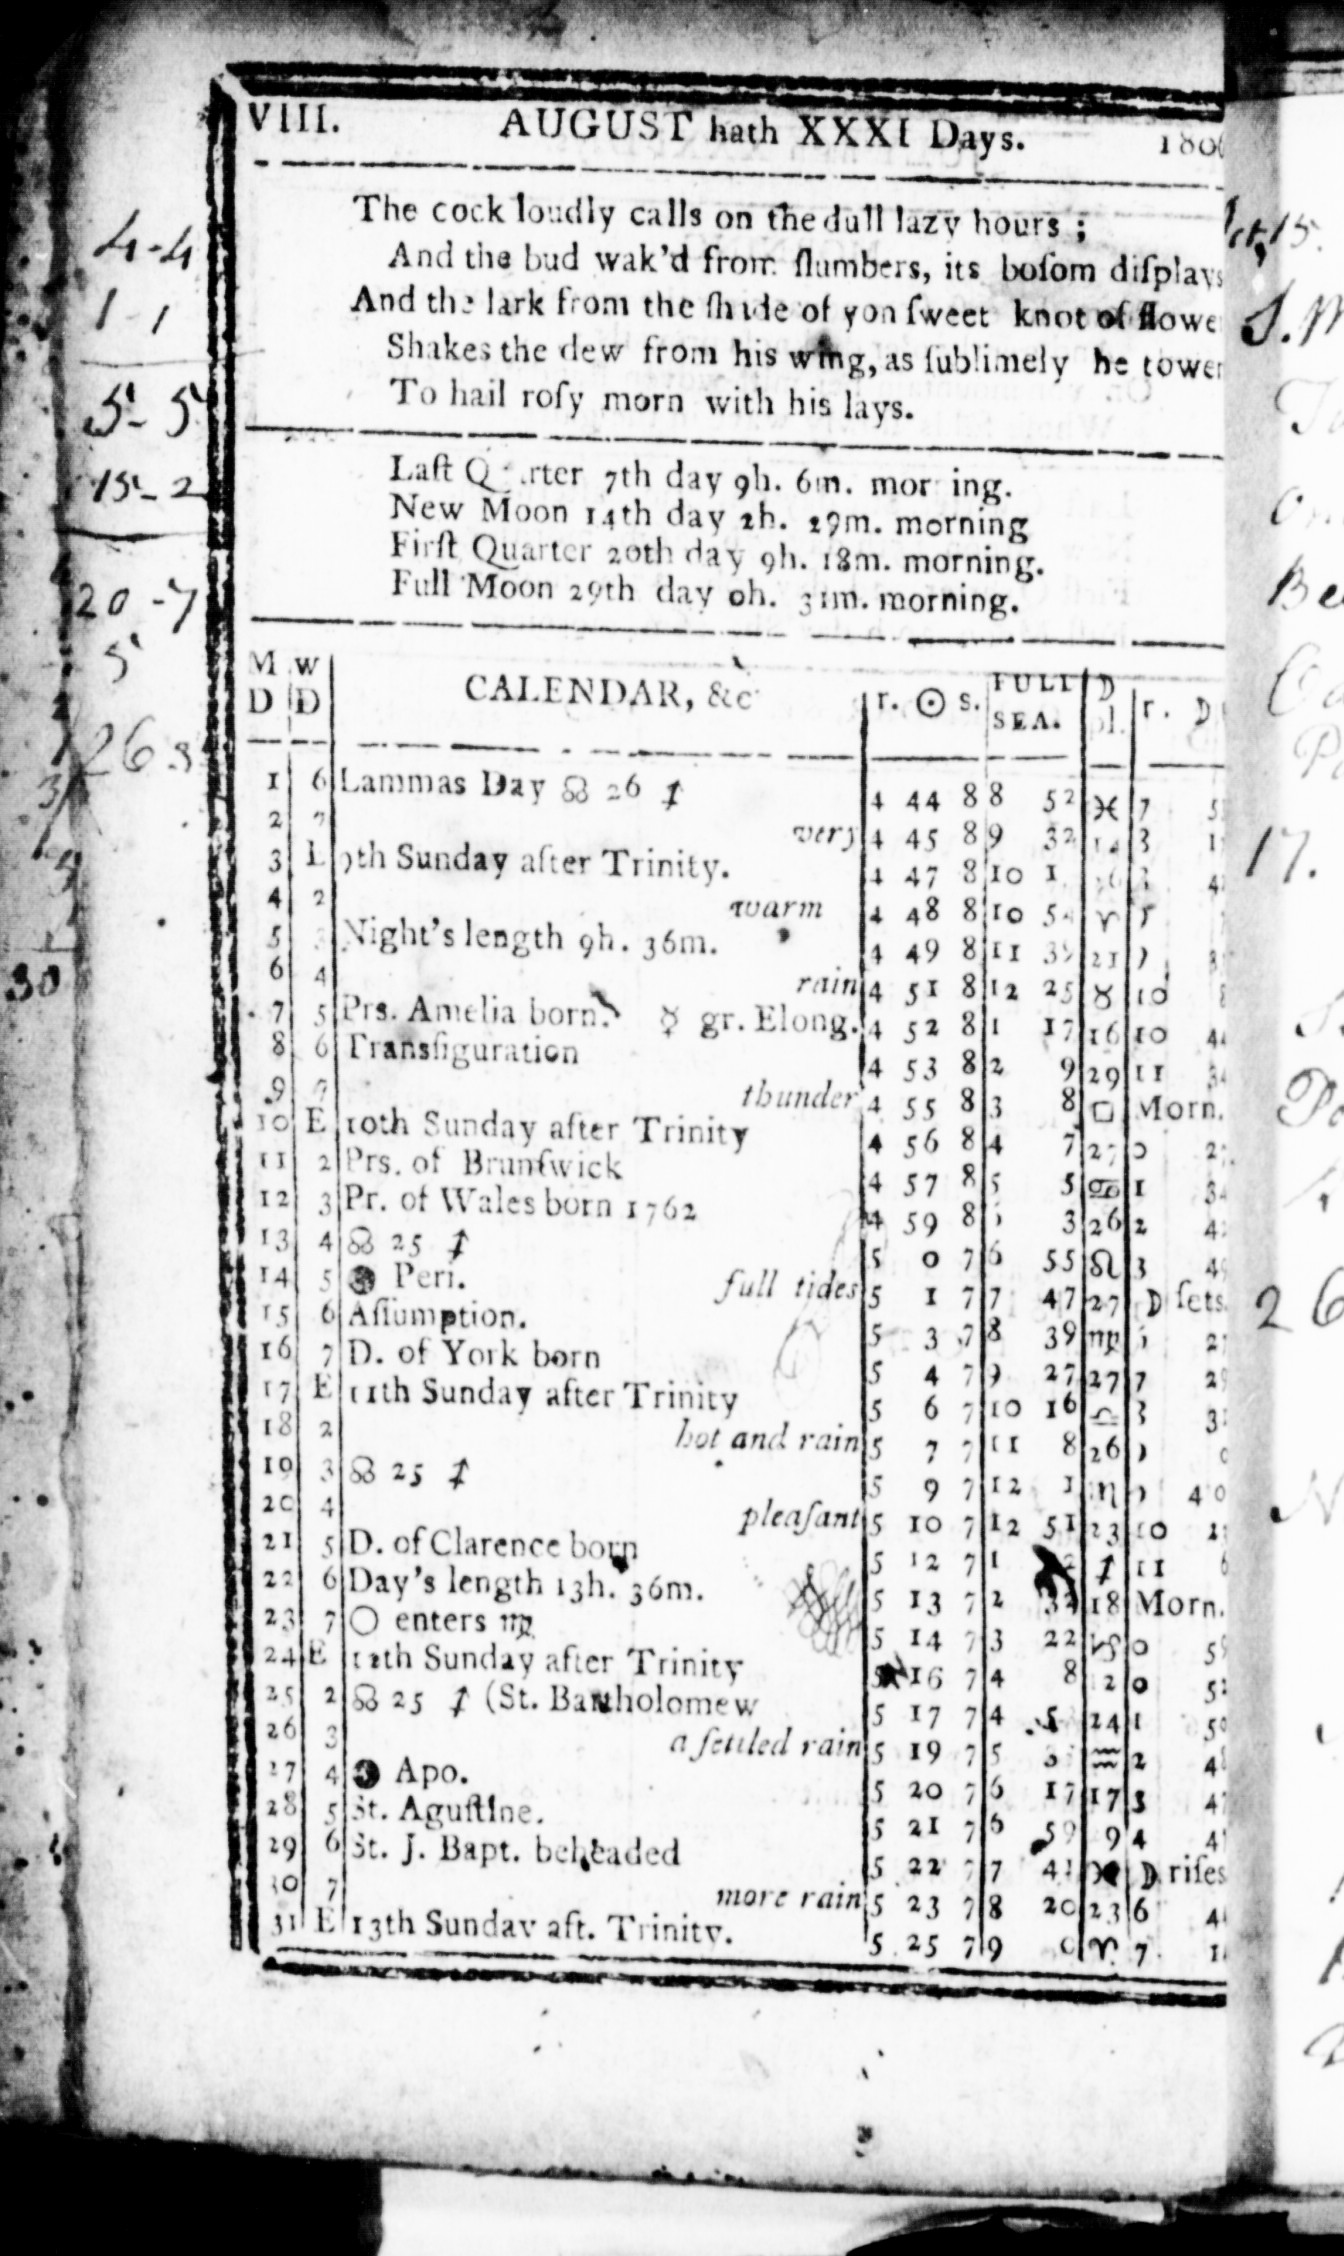 VIII. AUGUST hath XXXI Days. 180
The cock loudly calls on the dull lazy hours ;
And the bud wak'd from ſlumbers, its boſom diſplays
And the lark from the ſhade of yon ſweet knot of flowe
Shakes the dew from his wing, as ſublimely he tower
To hail roſy morn with his lays.
Laſt Quarter 7th day 9h. 6m. morning.
New Moon 14th day 2h. 29m. morning
Firſt Quarter 20th day 9h. 18m. morning.
Full Moon 29th day 0h. 31m. morning.
M D W D CALENDAR, &c r. ☉ s. FULL SEA. ☽ pl. r. ☽
1 6 Lammas Day ☊ 26 ♐ 4 44 8 8 52 ♓ 7
2 7 very 4 45 8 9 32 14
3 E 9th Sunday after Trinity. 4 47 8 10 1
4 2 warm 4 48 8 10 ♈
5 3 Night's length 9h. 36m. 4 49 8 11 39 21
6 4 rain 4 51 8 12 25 ♉ 10
7 5 Prs. Amelia born. ☿ gr. Elong. 4 52 8 1 17 16 10 44
8 6 Transfiguration 4 53 8 2 9 29 11 34
9 7 thunder 4 55 8 3 8 □ Morn.
10 E 10th Sunday after Trinity 4 56 8 4 7 27 0 27
11 2 Prs. of Brunſwick 4 57 8 5 5 ♋ 1 34
12 3 Pr. of Wales born 1762 4 59 8 3 26 2 4
13 4 ☊ 25 ♐ 5 0 7 6 55 ♌ 3 4
14 5 ● Peri. full tides 5 1 7 7 47 27 ☽ ſets
15 6 Aſſumption. 5 3 7 8 39 ♍ 2
16 7 D. of York born 5 4 7 9 27 27 7 2
17 E 11th Sunday after Trinity 5 6 7 10 16 ♎ 3
18 2 hot and rain 5 7 7 11 8 26
19 3 ☊ 25 ♐ 5 9 7 12 1 ♏ 40
20 4 pleaſant 5 10 7 12 51 23 10
21 5 D. of Clarence born 5 12 7 1 ♐ 11
22 6 Day's length 13h. 36m. 5 13 7 2 32 18 Morn.
23 7 ○ enters ♍ 5 14 7 3 22 ♑ 0 5
24 E 12th Sunday after Trinity 5 16 7 4 8 12 0 5
25 2 ☊ 25 ♐ (St. Bartholomew 5 17 7 4 24 1 5
26 3 a ſettled rain 5 19 7 5 ♒ 2 4
27 4 ● Apo. 5 20 7 6 17 17 3 4
28 5 St. Aguſtine. 5 21 7 6 59 9 4 4
29 6 St. J. Bapt. beheaded 5 22 7 7 41 ♓ ☽ riſes
30 7 more rain 5 23 7 8 20 23 6 4
31 E 13th Sunday aft. Trinity. 5 25 7 9 0 ♈ 7 1
4-4
1-1
5-5
15-2
20-7
5
26
30
15.
17.
26